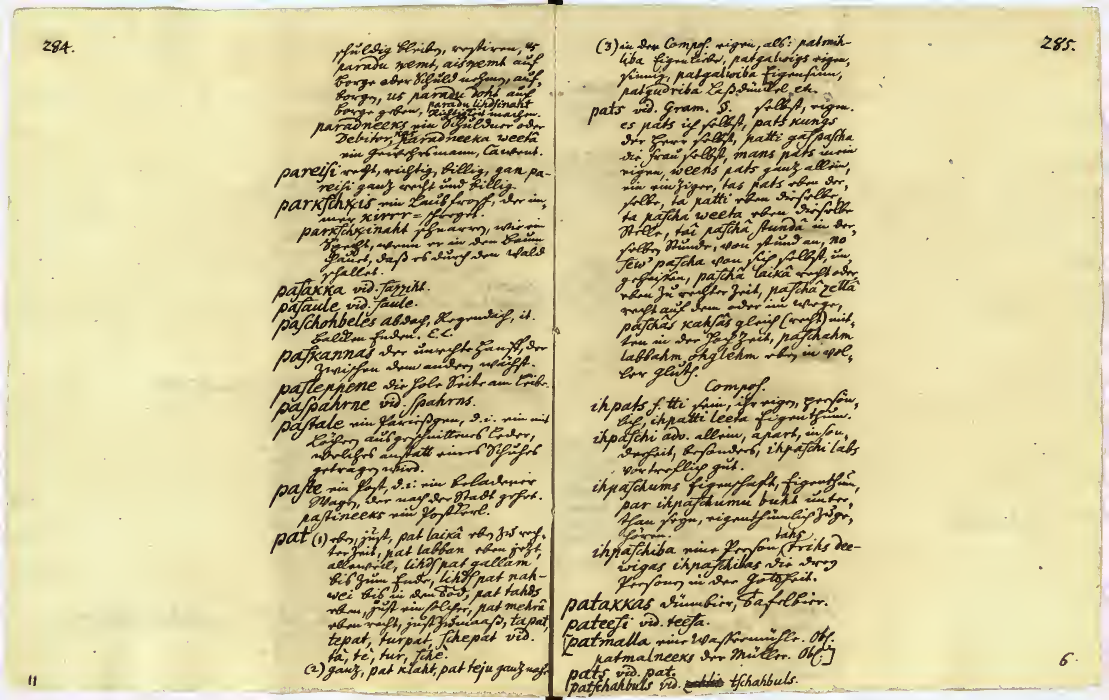 284.
schuldig bleiben, restiren, us
paradu nemt, aisnemt auf
borge oder Schuld nehmen, auf
borgen, us paradu doht auf
borge geben, paradu lihdsinaht
machen.
paradneeks ein Schuldner oder
Debiter, paradneeka weeta
ein Gewehrsmann, Cavent.
pareisi recht, richtig, billig, gan pa-
reisi ganz recht und billig.
parkschkis ein Laubfrosch, der im-
mer kirrr=
parkschkinaht schnarren, wie ein
Specht, wenn er in den Baum
hauet, daß es durch den Wald
schallet.
pasakka vid. sazziht.
pasaule vid. saule.
paschohbeles abdach, Regendach, it.
Balken Enden.
paskannas der unechte Hanff, der
zwischen dem andern wächst.
pasleppene die hole Seite am Leibe.
paspahrne vid. spahrns.
pastale ein Parießgen, d. i. ein mit
Löchern ausgeschnittenes Leder,
welches anstatt eines Schuhes
getragen wird.
paste ein Post, d. i: ein beladener
Wagen, der nach der Stadt gehet.
pastineeks ein PostKerl.
pat (1) eben, just, pat laikâ eben zu rech-
ter Zeit, pat labban eben jetzt,
alleweil, lihds pat gallam,
bis zum Ende, lihds pat nah-
wei bis in den Tod, pat tahds
eben, just ein solcher, pat mehrâ
eben recht, just zumaaß, tapat,
tepat, turpat, schepat vid.
tâ, tê, tur, schê.
(2) ganz, pat klaht, pat teju ganz nahe
11
285.
(3) in der Compos. eigen, als: patmih-
liba Eigenliebe, patgalwigs eigen,
sinnig, patgalwiba Eigensinn,
patgudriba Laßdünkel etc.
pats vid. Gram. §. selbst, eigen.
es pats ich selbst, pats kungs
der Herr selbst, patti gaspascha
die Frau selbst, mans pats mein
eigen, weens pats ganz allein,
ein einziger, tas pats eben der,
selbe, ta patti eben dieselbe,
ta pascha weeta eben dieselbe
Stelle, tai paschâ stundâ in der,
selben Stunde, von stund an, no
sew' pascha von sich selbst, un,
geheißen, paschâ laikâ recht oder
eben zu rechter Zeit, paschâ zellâ
recht auf dem oder im Wege,
paschâs kahsâs gleich (recht) mit-
ten in der Hochzeit, paschahm
labbahm ohglehm eben in vol-
ler Gluth.
Compos.
ihpats f. tti sein, ihr eigen, persön,
lich, ihpatti leeta Eigenthum.
ihpaschi adv. allein, apart, inson,
derheit, besonders, ihpaschi labs
vortreflich gut.
ihpaschums Eigenschaft, Eigenthum,
par ihpaschumu buht unter,
than seyn, eigenthümlich zuge,
hören.
tahs
ihpaschiba eine Person, trihs dee-
wigas ihpaschibas die drey
Personen in der Gottheit.
patakkas dünnbier, Tafelbier.
pateesi vid. teesa.
[patmalla eine Wassermühle. Obs.
patmalneeks der Müller. Obs.]
pats vid. pat.
patschahbuls vid. tschahbuls.
6